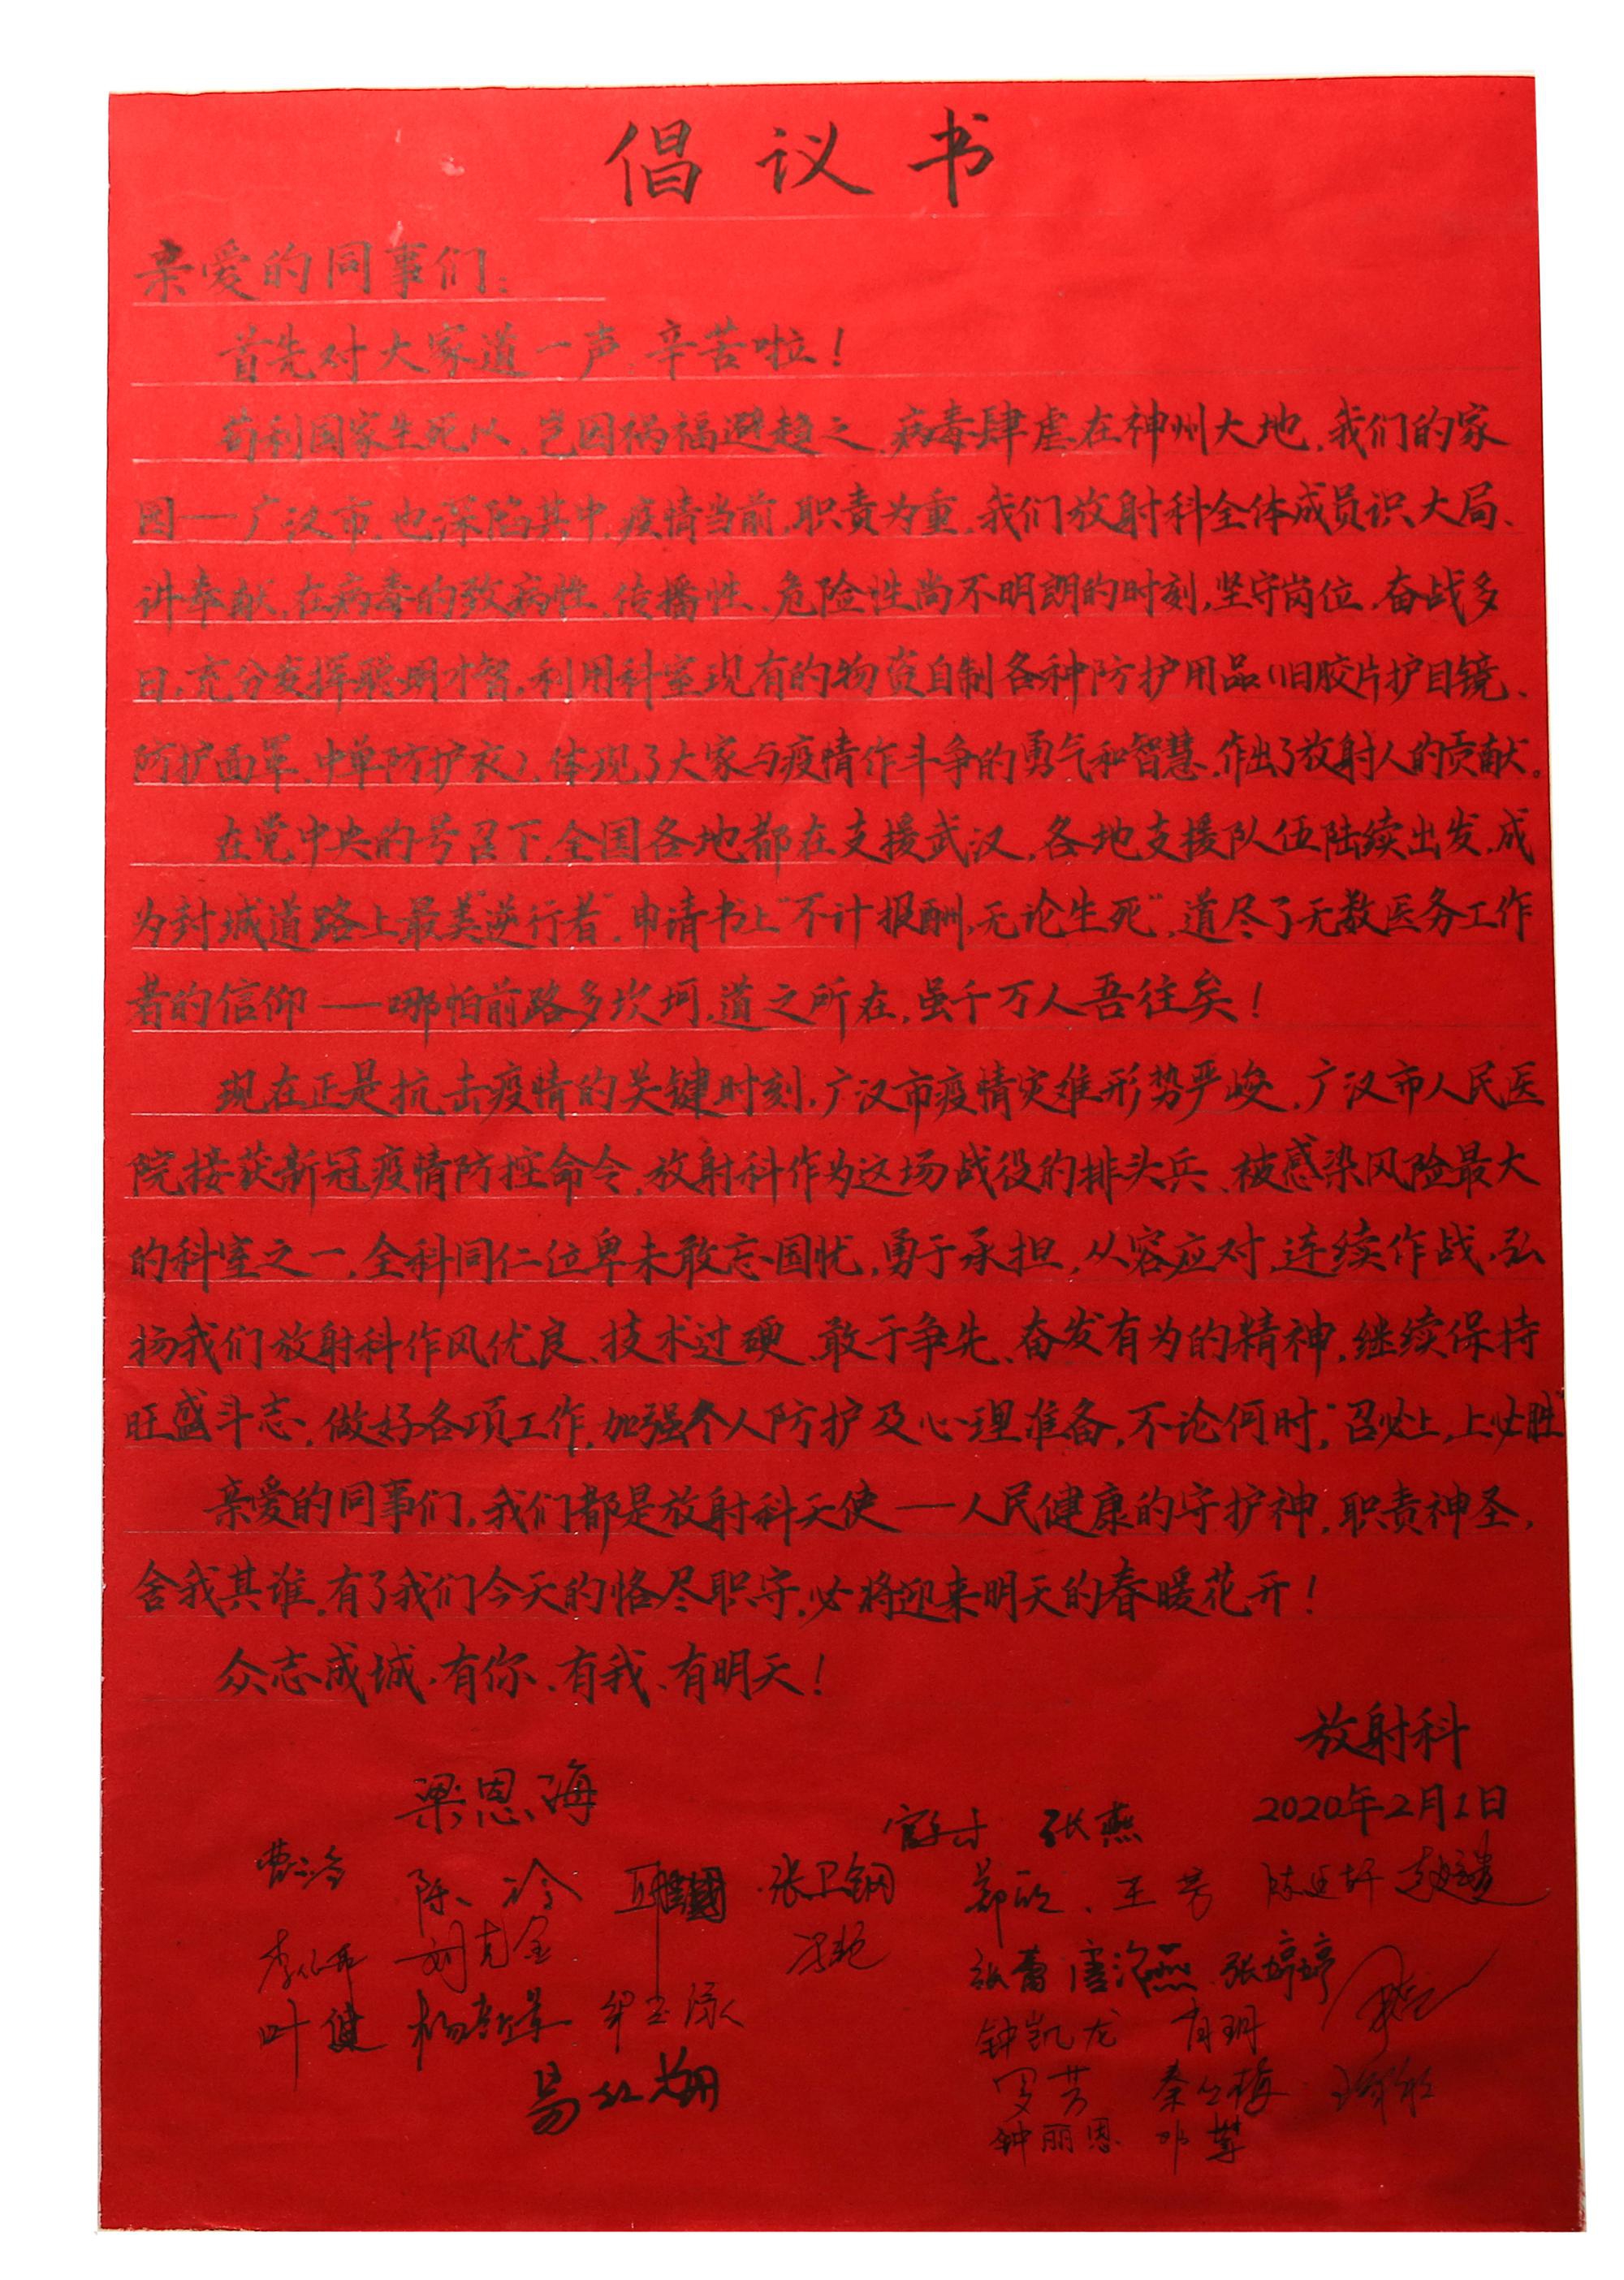 倡议书
亲爱的同事们:
首先对大家道一声:辛苦啦!
苟利国家生死以,岂因祸福避趋之,病毒肆虐在神州大地,我们的家
园——广汉市,也深陷其中,疫情当前,职责为重,我们放射科全体成员识大局、
讲奉献,在病毒的致病性、传播性、危险性尚不明朗的时刻,坚守岗位,奋战多
日,充分发挥聪明才智,利用科室现有的物资自制各种防护用品(旧胶片护目镜、
防护面罩、中单防护衣),体现了大家与疫情作斗争的勇气和智慧,作出了放射人的贡献。
在党中央的号召下,全国各地都在支援武汉,各地支援队伍陆续出发,成
为封城道路上最美“逆行者”,申请书上“不计报酬,无论生死”,道尽了无数医务工作
者的信仰——哪怕前路多坎坷,道之所在,虽千万人吾往矣!
现在正是抗击疫情的关键时刻,广汉市疫情灾难形势严峻,广汉市人民医
院接获新冠疫情防控命令,放射科作为这场战役的排头兵、被感染风险最大
的科室之一,全科同仁位卑未敢忘国忧,勇于承担,从容应对,连续作战,弘
扬我们放射科作风优良、技术过硬、敢于争先、奋发有为的精神,继续保持
旺盛斗志,做好各项工作,加强个人防护及心理准备,不论何时,“召必上,上必胜”
亲爱的同事们,我们都是放射科天使——人民健康的守护神,职责神圣,
舍我其谁,有了我们今天的恪尽职守,必将迎来明天的春暖花开!
众志成城,有你、有我、有明天!
放射科
2020年2月1日
梁恩海
张燕
陈冷 张卫钢 郑欣、王芳
刘克金
张蕾 唐沁燕 张婷婷
叶健 杨新星 钟凯龙 肖玥
易红翔 罗芳
钟丽恩